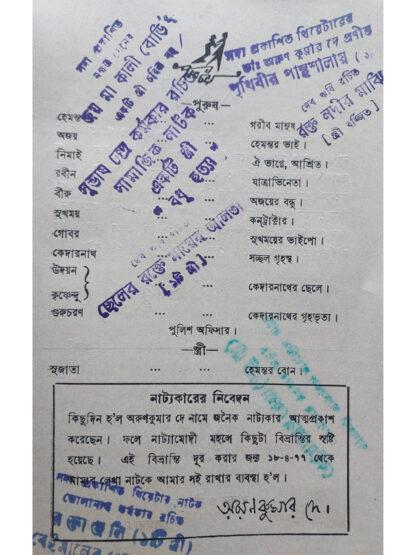 সদ্য প্রকাশিত
জয় মা কালী বোর্ডিং
একটি স্ত্রী চরিত্র সহ
সুভাষ চন্দ্র কর্মকার রচিত
সামাজিক নাটক
একটি স্ত্রী
বধু হত্যা
সদ্য প্রকাশিত থিয়েটারের
ডাঃ অরুণ কুমার দে প্রণীত
পৃথিবীর পান্থশালায় (১
রক্ত নদীর মাঝি
[স্ত্রী বর্জিত]
ছেলের রক্তে মায়ের আলতা
[১টি স্ত্রী]
—পুরুষ—
হেমন্ত ... গরীব মানুষ
অজয় ... হেমন্তর ভাই।
নিমাই ... ঐ ভাগ্নে, আশ্রিত।
রবীন ... যাত্রাভিনেতা।
বীরু ... অজয়ের বন্ধু।
সুখময় ... কনট্রাক্টার।
গোবর ... সুখময়ের ভাইপো।
কেদারনাথ ... সচ্ছল গৃহস্থ।
উদয়ন
কৃষ্ণেন্দু ... কেদারনাথের ছেলে।
গুরুচরণ ... কেদারনাথের গৃহভৃত্য।
পুলিশ অফিসার।
—স্ত্রী—
সুজাতা ... ... হেমন্তর বোন।
নাট্যকারের নিবেদন
কিছুদিন হ'ল অরুণকুমার দে নামে জনৈক নাট্যকার আত্মপ্রকাশ
করেছেন। ফলে নাট্যামোদী মহলে কিছুটা বিভ্রান্তির সৃষ্টি
হয়েছে। এই বিভ্রান্তি দূর করার জন্য ১৮-৪-৭৭ থেকে
আমার লেখা নাটকে আমার সই রাখার ব্যবস্থা হ'ল।
অরুণকুমার দে।
সদ্য প্রকাশিত থিয়েটার নাটক
রক্তাঞ্জলি (১টি স্ত্রী)